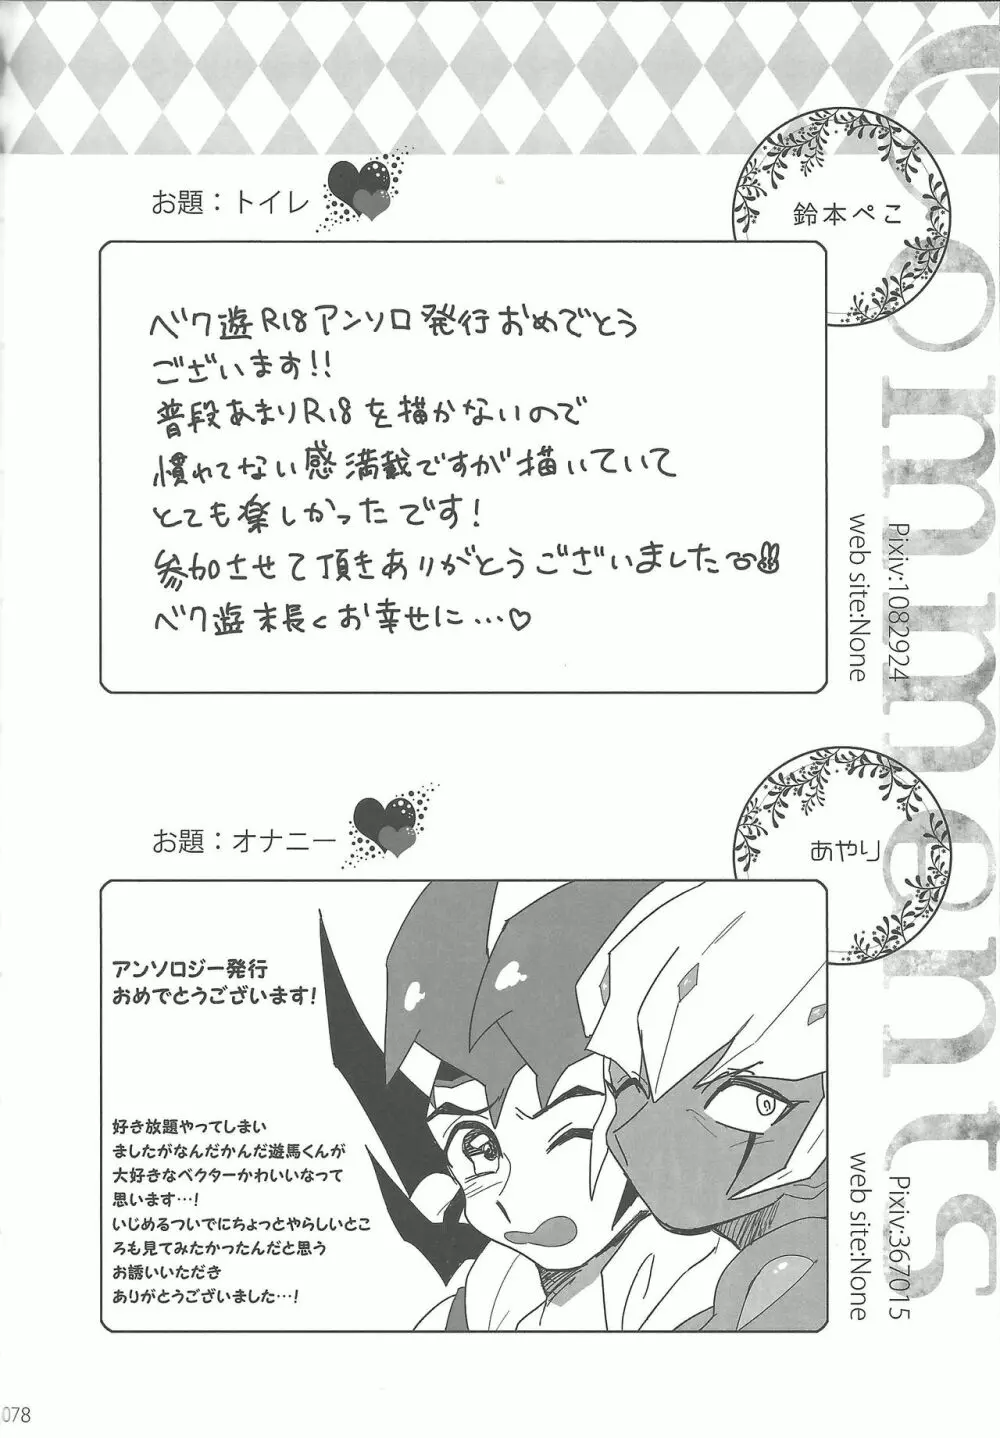 Comments
お題：トイレ
鈴本ぺこ
ベク遊R18アンソロ発行おめでとう
ございます!!
普段あまりR18を描かないので
慣れてない感満載ですが描いていて
とても楽しかったです!
参加させて頂きありがとうございました
ベク遊末長くお幸せに…♡
Pixiv:1082924
web site:None
お題：オナニー
あやり
アンソロジー発行
おめでとうございます!
好き放題やってしまい
ましたがなんだかんだ遊馬くんが
大好きなベクターかわいいなって
思います…!
いじめるついでにちょっとやらしいとこ
ろも見てみたかったんだと思う
お誘いいただき
ありがとうございました…!
Pixiv:367015
web site:None
078